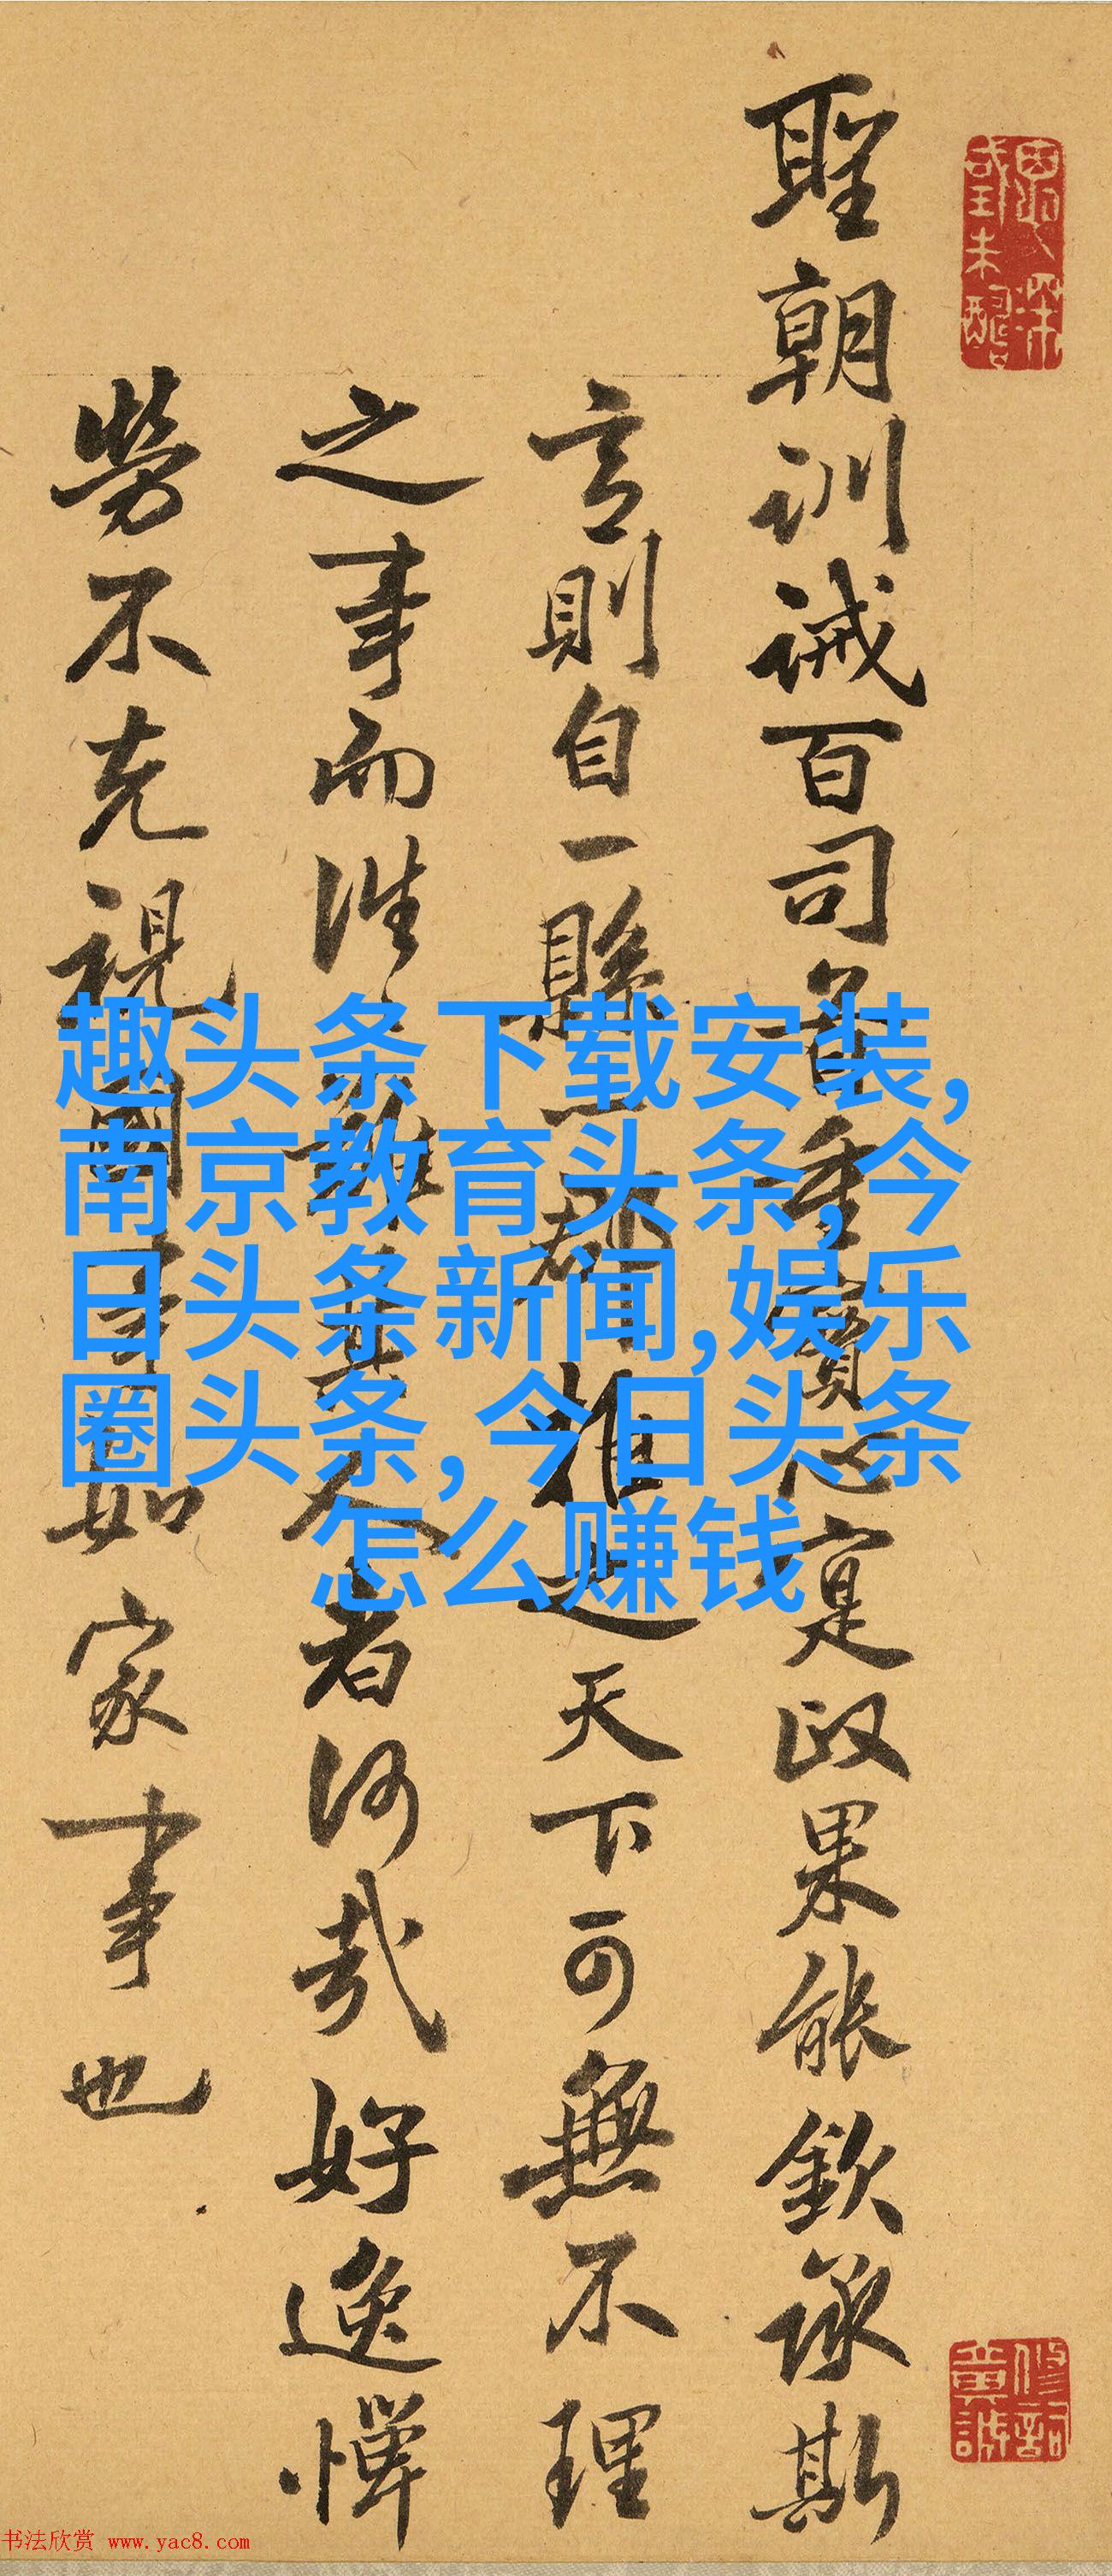 聖朝訓誡百司首重實心寔政果能欽承斯
言則自一縣一郡推之天下可無不理
之事而往難其人者何哉好逸憚
勞不克視國事如家事也
趣头条下载安装,
南京教育头条,今
日头条新闻,娱乐
圈头条,今日头条
怎么赚钱
书法欣赏 www.yac8.com